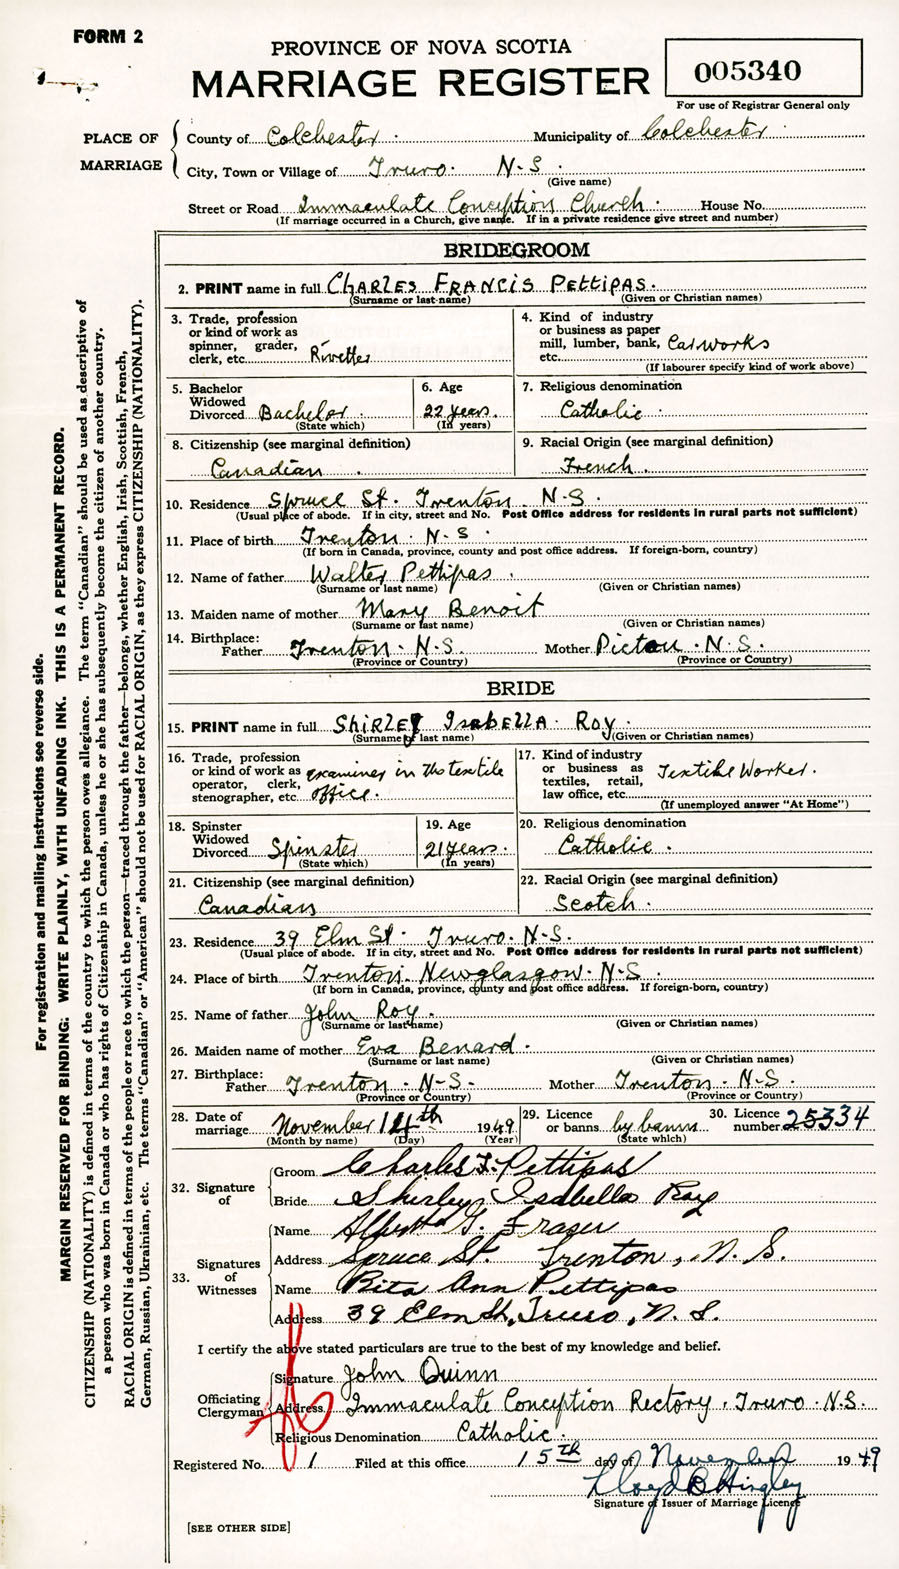 FORM 2
PROVINCE OF NOVA SCOTIA
MARRIAGE REGISTER
005340
For use of Registrar General only
PLACE OF MARRIAGE
County of Colchester Municipality of Colchester
City, Town or Village of Truro. N-S.
(Give name)
Street or Road Immaculate Conception Church. House No.
(If marriage occurred in a Church, give name. If in a private residence give street and number)
BRIDEGROOM
2. PRINT name in full CHARLES FRANCIS PETTIPAS.
(Surname or last name) (Given or Christian names)
3. Trade, profession or kind of work as spinner, grader, clerk, etc. Rivetter
4. Kind of industry or business as paper mill, lumber, bank, etc. Car works
(If labourer specify kind of work above)
5. Bachelor Widowed Divorced Bachelor.
(State which)
6. Age 22 years.
(In years)
7. Religious denomination Catholic.
8. Citizenship (see marginal definition) Canadian.
9. Racial Origin (see marginal definition) French.
10. Residence Spruce St. Trenton. N-S.
(Usual place of abode. If in city, street and No. Post Office address for residents in rural parts not sufficient)
11. Place of birth Trenton. N-S.
(If born in Canada, province, county and post office address. If foreign-born, country)
12. Name of father Walter Pettipas.
(Surname or last name) (Given or Christian names)
13. Maiden name of mother Mary Benoit
(Surname or last name) (Given or Christian names)
14. Birthplace: Father Trenton. N-S. Mother Pictou. N-S.
(Province or Country) (Province or Country)
BRIDE
15. PRINT name in full SHIRLEY ISABELLA ROY.
(Surname or last name) (Given or Christian names)
16. Trade, profession or kind of work as operator, clerk, stenographer, etc. examiner in the textile office.
17. Kind of industry or business as textiles, retail, law office, etc. Textile Worker.
(If unemployed answer "At Home")
18. Spinster Widowed Divorced Spinster
(State which)
19. Age 21 years.
(In years)
20. Religious denomination Catholic.
21. Citizenship (see marginal definition) Canadian
22. Racial Origin (see marginal definition) Scotch.
23. Residence 39 Elm St. Truro. N-S.
(Usual place of abode. If in city, street and No. Post Office address for residents in rural parts not sufficient)
24. Place of birth Trenton. Newglasgow. N-S.
(If born in Canada, province, county and post office address. If foreign-born, country)
25. Name of father John Roy.
(Surname or last name) (Given or Christian names)
26. Maiden name of mother Eva Benard.
(Surname or last name) (Given or Christian names)
27. Birthplace: Father Trenton. N-S. Mother Trenton. N-S.
(Province or Country) (Province or Country)
28. Date of marriage November 14th 1949
(Month by name) (Day) (Year)
29. Licence or banns by banns
(State which)
30. Licence number 25334
32. Signature of
Groom Charles F. Pettipas
Bride Shirley Isabella Roy
33. Signatures of Witnesses
Name G. Fraser
Address Spruce St. Trenton, N. S.
Name Rita Ann Pettipas
Address 39 Elm St, Truro, N. S.
I certify the above stated particulars are true to the best of my knowledge and belief.
Officiating Clergyman
Signature John Quinn
Address Immaculate Conception Rectory. Truro. N.S.
Religious Denomination Catholic.
Registered No. 1 Filed at this office 15th day of November 1949
Lloyd B Hingley
Signature of Issuer of Marriage Licence
[SEE OTHER SIDE]
For registration and mailing instructions see reverse side.
MARGIN RESERVED FOR BINDING: WRITE PLAINLY, WITH UNFADING INK. THIS IS A PERMANENT RECORD.
CITIZENSHIP (NATIONALITY) is defined in terms of the country to which the person owes allegiance. The term "Canadian" should be used as descriptive of
a person who was born in Canada or who has rights of Citizenship in Canada, unless he or she has subsequently become the citizen of another country.
RACIAL ORIGIN is defined in terms of the people or race to which the person—traced through the father—belongs, whether English, Irish, Scottish, French,
German, Russian, Ukrainian, etc. The terms "Canadian" or "American" should not be used for RACIAL ORIGIN, as they express CITIZENSHIP (NATIONALITY).